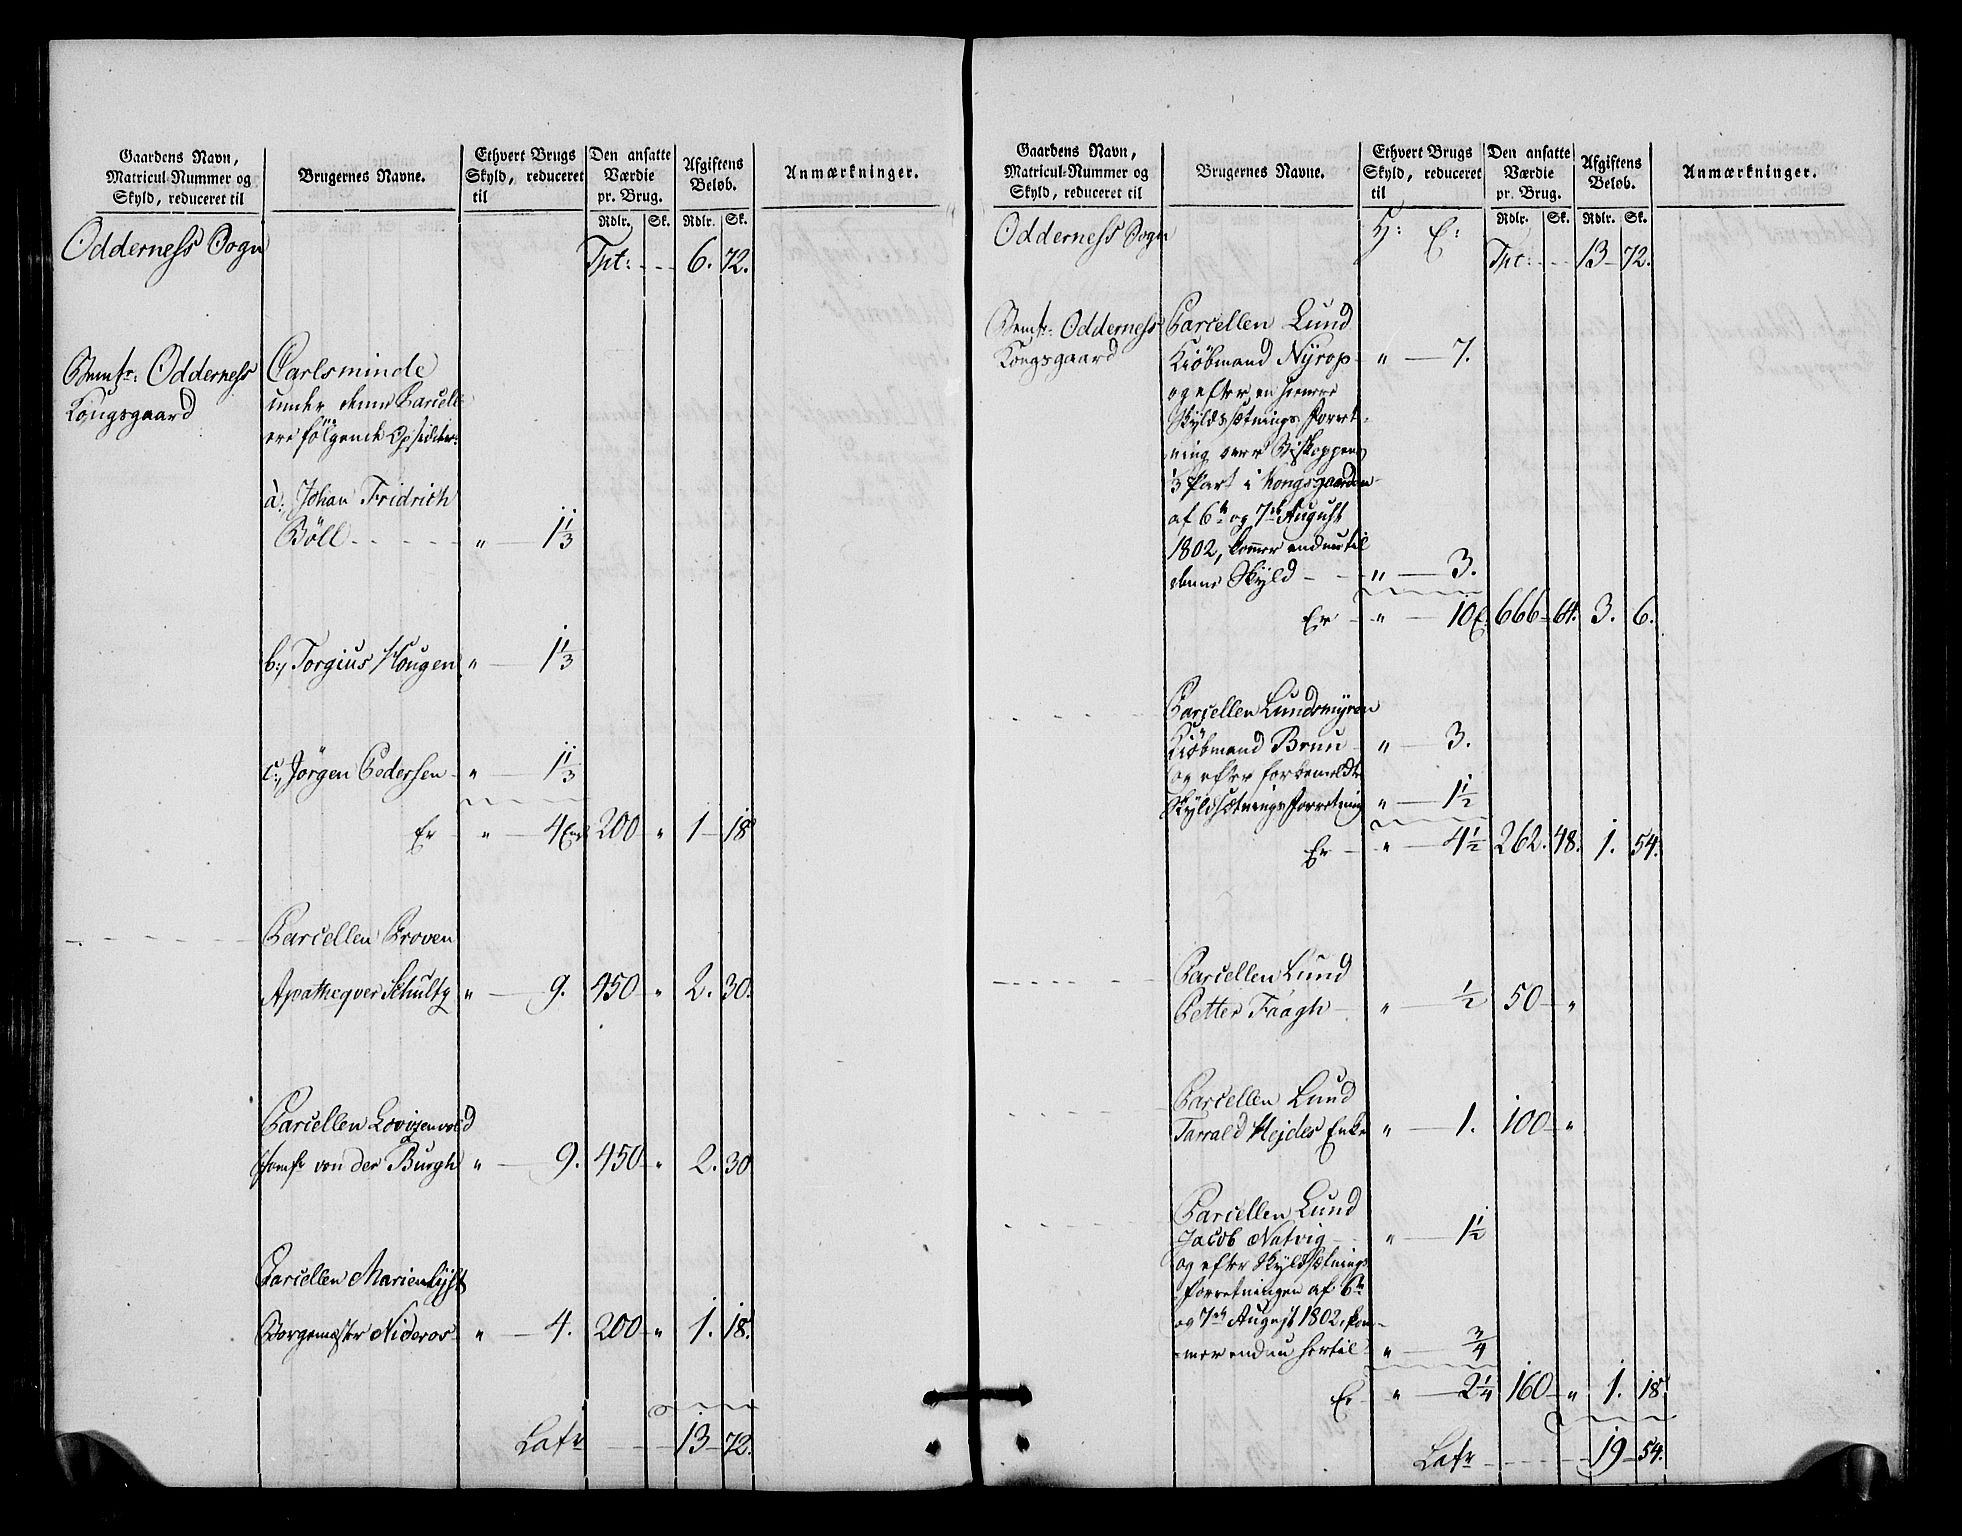 Gaardens Navn,
Matricul-Nummer og
Skyld, reduceret til
Brugernes Navne.
Ethvert Brugs
Skyld, reduceret
til
Den ansatte
Værdie
pr. Brug.
Afgiftens
Beløb.
Anmærkninger.
Rdlr. Sk. Rdlr. Sk.
Odderness Sogn
Tpt: 6. 72.
Odderness
Kongsgaard
Carlsminde
under denne Parcell
ere følgende Opsiddere:
a:, Johan Fridrich
Böll - - - - „ — 1 1/3
b:, Torgius Hougen „ — 1 1/3
c:, Jörgen Pedersen - „ — 1 1/3
Er - „ — 4 200 „ 1 — 18
Parcellen Proven
Apothequer Schultz „ — 9. 450 „ 2. 30.
Parcellen Lovizenvold
von der Burgh „ — 9. 450 „ 2. 30
Parcellen Marienlyst
Borgemester Nideros „ — 4. 200 „ 1. 18.
Latr 13 — 72.
Gaardens Navn,
Matricul-Nummer og
Skyld, reduceret til
Brugernes Navne.
Ethvert Brugs
Skyld, reduceret
til
Den ansatte
Værdie
pr. Brug.
Afgiftens
Beløb.
Anmærkninger.
Rdlr. Sk. Rdlr. Sk.
Odderness Sogn
H: E:
Tpt: 13 — 72.
Odderness
Kongsgaard
Parcellen Lund
Kiöbmand Nyrop - „ — 7.
og efter en senere
Skyldsætnings Forret-
ning over Biskoppens
1/3 Part i Kongsgaarden
af 6te og 7de August
1802, kommer endnu til
denne Skyld - - „ — 3.
Er - „ — 10 E. 666 — 64. 3. 6.
Parcellen Lundsmyren
Kiöbmand Bruu - „ — 3.
og efter forbemeldte
Skyldsætnings Forretning „ — 1 1/2
Er - „ — 4 1/2 262. 48. 1. 54.
Parcellen Lund
Petter Faagh - „ — 1/2 50 — „
Parcellen Lund
Tarrald Hejdes Enke „ — 1. 100 — „
Parcellen Lund
Jacob Natvig - - „ — 1 1/2
og efter Skyldsætnings
Forretningen af 6te
og 7de August 1802, kom-
-mer endnu hertil „ — 3/4
Er - „ — 2 1/4 160 — „ 1. 18
Latr - - - - 19 — 54.